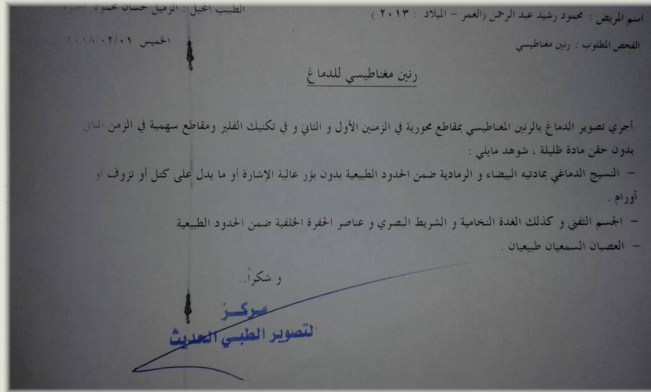 اسم المريض : محمود رشيد عبد الرحمن (العمر – الميلاد : ٢٠١٣ )
الطبيب المحيل : الزميل حسان حمود
الفحص المطلوب : رنين مغناطيسي
الخميس ٢٠١٨/٠٢/٠١
رنين مغناطيسي للدماغ
أجري تصوير الدماغ بالرنين المغناطيسي بمقاطع محورية في الزمنين الأول و الثاني و في تكنيك الفلير ومقاطع سهمية في الزمن الثاني
بدون حقن مادة ظليلة ، شوهد مايلي :
– النسيج الدماغي بمادتيه البيضاء و الرمادية ضمن الحدود الطبيعية بدون بؤر عالية الإشارة أو ما يدل على كتل أو نزوف أو
أورام .
– الجسم الثفني و كذلك الغدة النخامية و الشريط البصري و عناصر الحفرة الخلفية ضمن الحدود الطبيعية
– العصبان السمعيان طبيعيان .
و شكراً..
مركز
التصوير الطبي الحديث